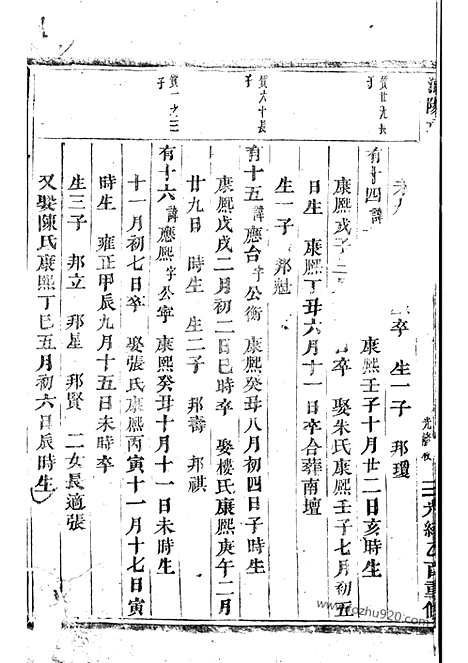 光緒乙酉重修
卒 生一子 邦瓊
賀廿九長子
有十四 諱 康熙壬子十月廿二日亥時生
康熙戊子 卒 娶朱氏康熙壬子七月初五
日 生 康熙丁丑六月十一日卒合葬南壇
生一子 邦
賀六十長子
有十五 諱應台 字公衡 康熙癸丑八月初四日子時生
康熙戊戌二月初二日巳時卒 娶樓氏康熙庚午二月
廿九日 時生 生二子 邦壽 邦祺
子
有十六 諱應熙 字公寧 康熙癸丑十月十一日未時生
十一月初七日卒 娶張氏康熙丙寅十一月十七日寅
時生 雍正甲辰九月十五日未時卒
生三子 邦立 邦星 邦賢 二女長適張
又娶陳氏康熙丁巳五月初六日辰時生
gozhu920.com